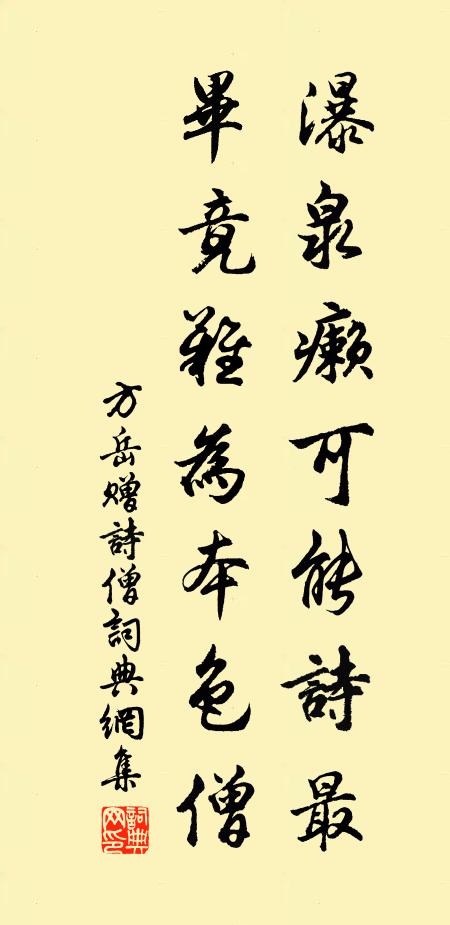 瀑泉癩可能詩最
畢竟難為本色僧
方岳贈詩僧詞典網集
詞典網印